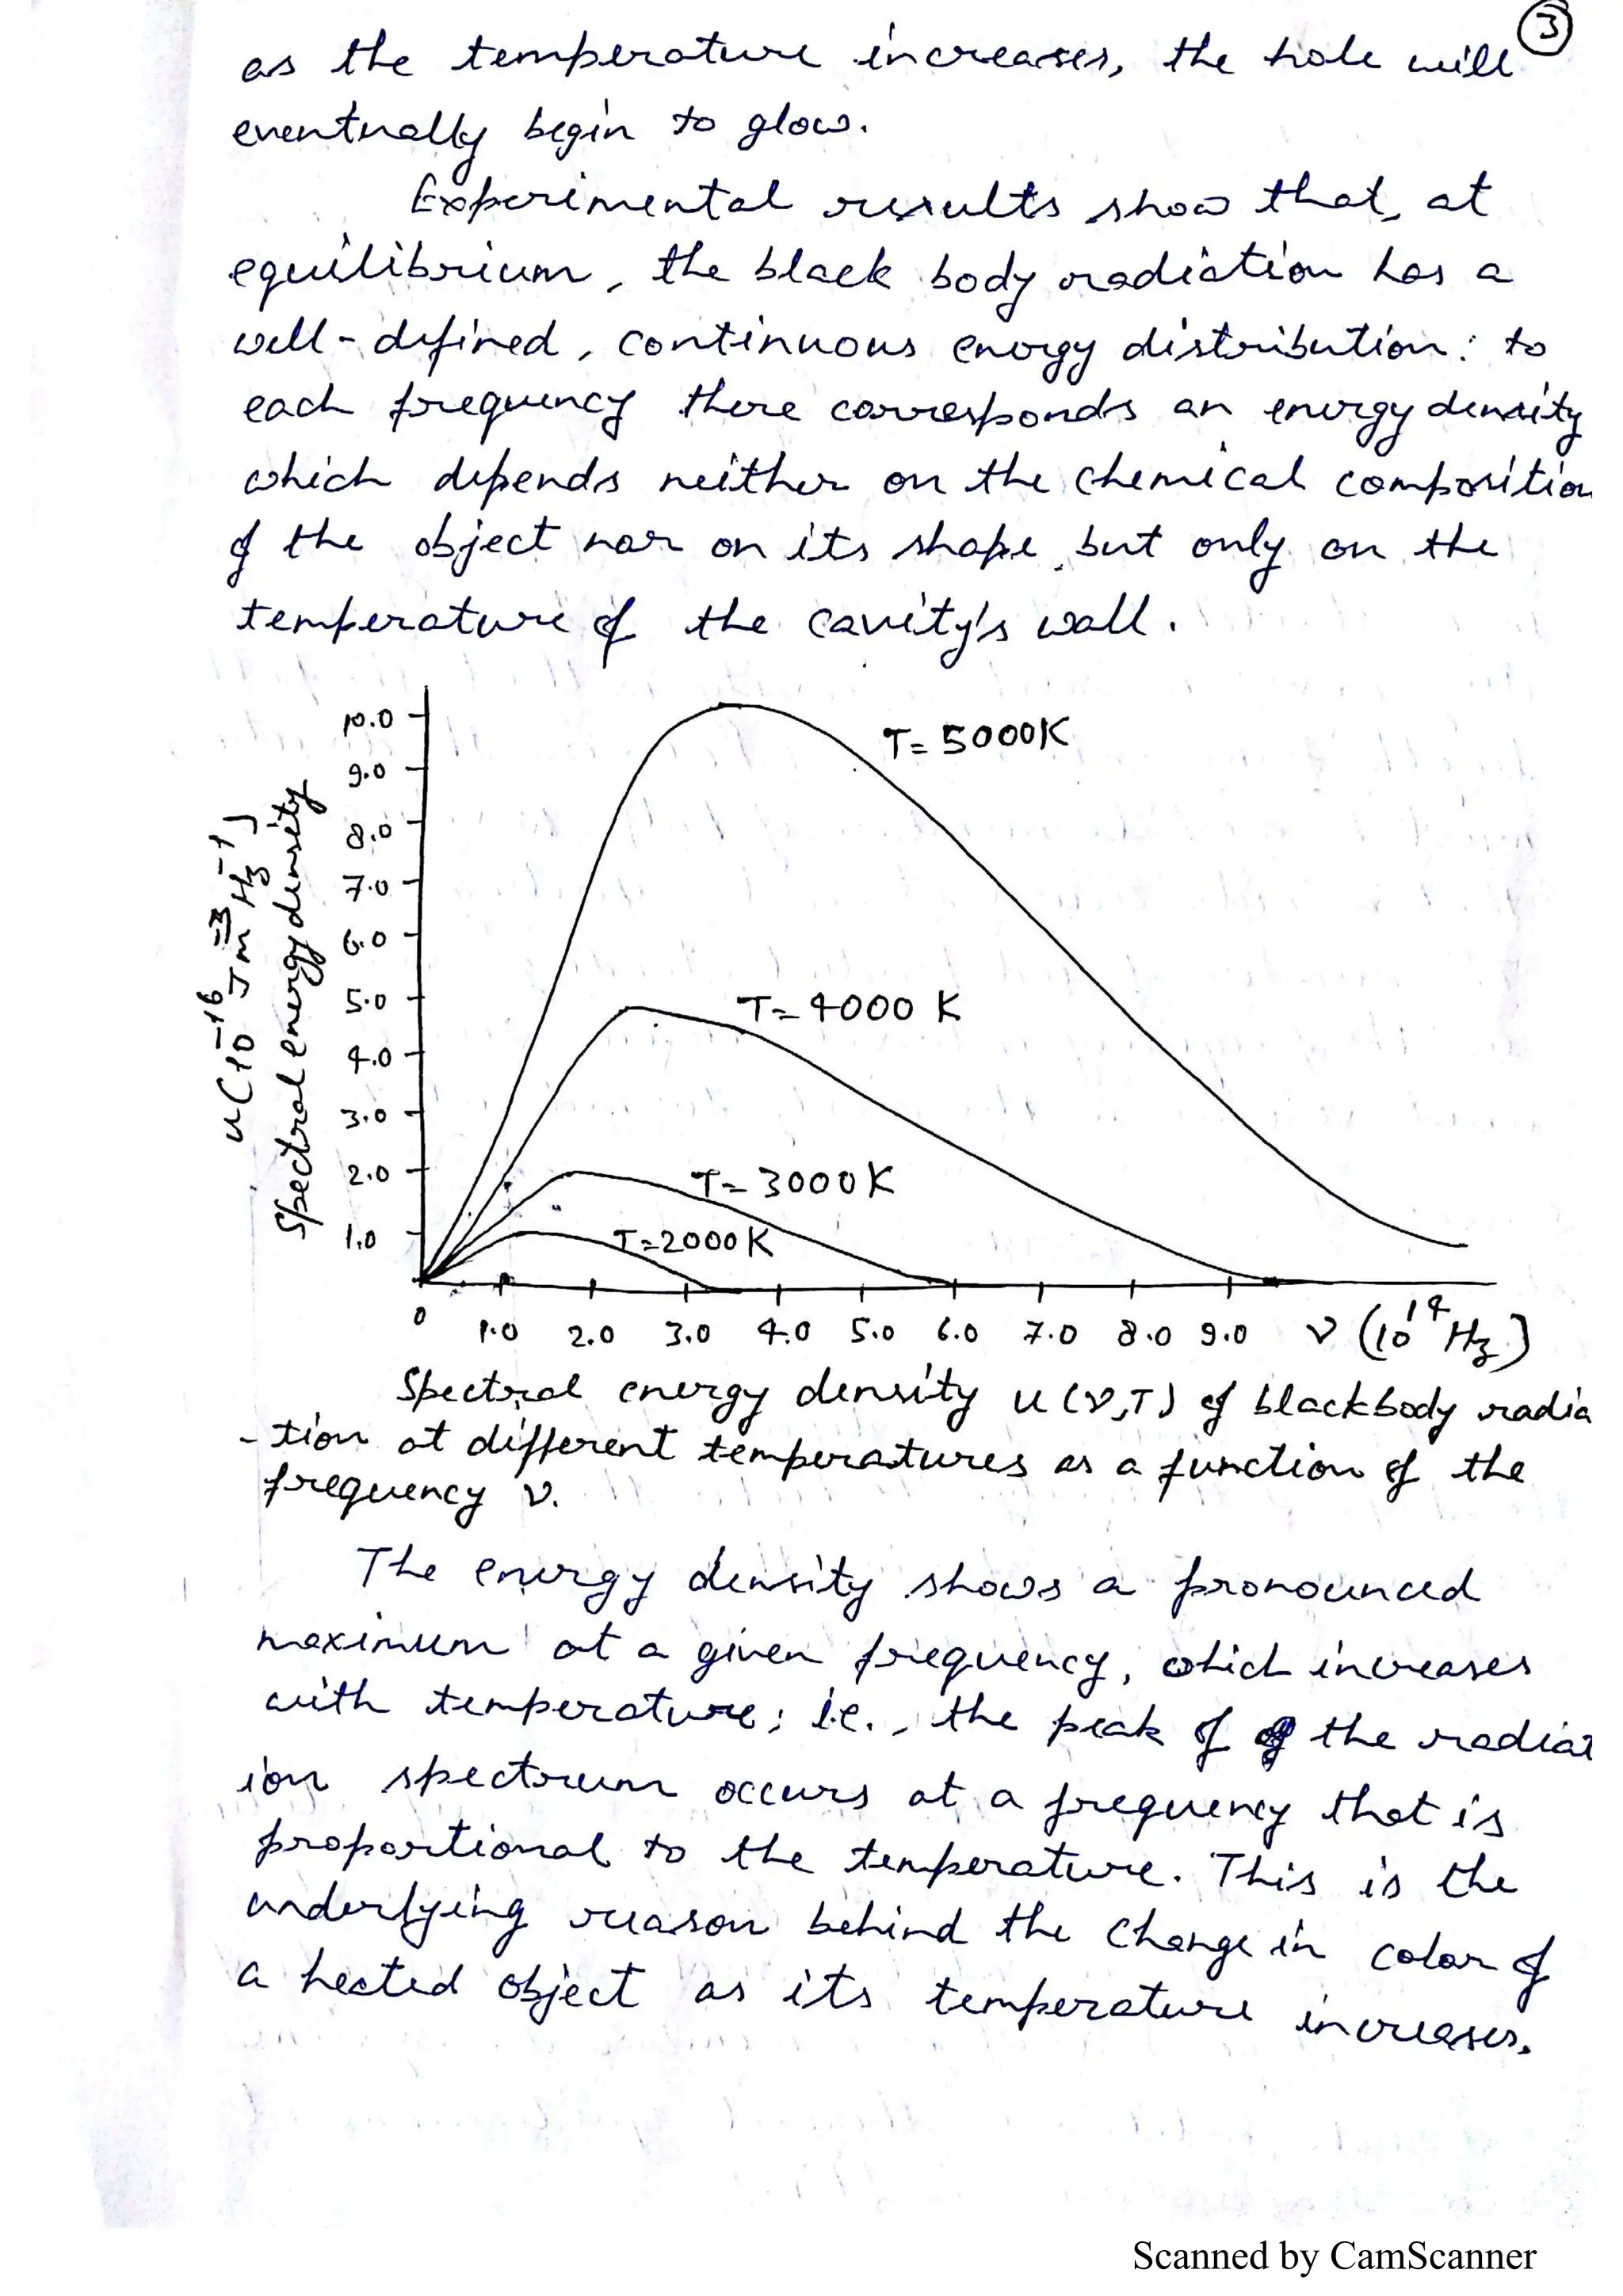 3
as the temperature increases, the hole will
eventually begin to glow.
Experimental results show that, at
equilibrium, the black body radiation has a
well-defined, continuous energy distribution: to
each frequency there corresponds an energy density
which depends neither on the chemical composition
of the object nor on its shape, but only on the
temperature of the cavity's wall.
u(10⁻¹⁶ J m⁻³ Hz⁻¹)
Spectral energy density
10.0
9.0
8.0
7.0
6.0
5.0
4.0
3.0
2.0
1.0
T= 5000K
T= 4000 K
T= 3000K
T=2000K
0 1.0 2.0 3.0 4.0 5.0 6.0 7.0 8.0 9.0 ν (10¹⁴ Hz)
Spectral energy density u(ν,T) of blackbody radia
-tion at different temperatures as a function of the
frequency ν.
The energy density shows a pronounced
maximum at a given frequency, which increases
with temperature; i.e., the peak of the radiat
ion spectrum occurs at a frequency that is
proportional to the temperature. This is the
underlying reason behind the change in color of
a heated object as its temperature increases.
Scanned by CamScanner